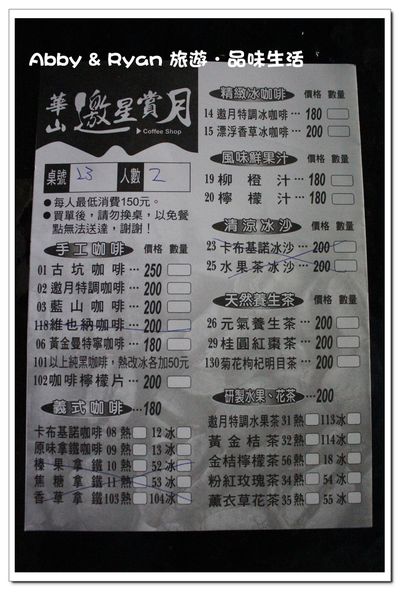 Abby & Ryan 旅遊・品味生活
華山 邀星賞月
▶Coffee Shop
桌號 23 人數 2
●每人最低消費150元。
●買單後，請勿換桌，以免餐
點無法送達，謝謝！
手工咖啡 價格 數量
01 古坑咖啡…250
02 邀月特調咖啡…200
03 藍山咖啡…200
118 維也納咖啡…200
06 黃金曼特寧咖啡…180
101以上純黑咖啡，熱改冰各加50元
102 咖啡檸檬片…200
義式咖啡…180
卡布基諾咖啡 08 熱 12 冰
原味拿鐵咖啡 09 熱 13 冰
榛果拿鐵 10 熱 52 冰
焦糖拿鐵 11 熱 53 冰
香草拿鐵 103 熱 104 冰
精緻冰咖啡 價格 數量
14 邀月特調冰咖啡…180
15 漂浮香草冰咖啡…200
風味鮮果汁 價格 數量
19 柳橙汁…180
20 檸檬汁…180
清涼冰沙 價格 數量
23 卡布基諾冰沙…200
25 水果茶冰沙…200
天然養生茶 價格 數量
26 元氣養生茶…200
29 桂圓紅棗茶…200
130 菊花枸杞明目茶…200
研製水果、花茶…200
邀月特調水果茶 31 熱 113 冰
黃金桔茶 32 熱 114 冰
金桔檸檬茶 56 熱 18 冰
粉紅玫瑰茶 34 熱 54 冰
薰衣草花茶 35 熱 55 冰